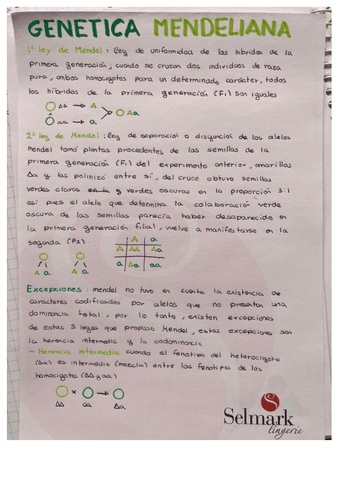 GENETICA MENDELIANA
1ª ley de Mendel: Ley de uniformidad de los híbridos de la
primera generación, cuando se cruzan dos individuos de raza
pura, ambos homocigotos para un determinado carácter, todos
los híbridos de la primera generación (F1) son iguales
AA → A
Aa
aa → a
2ª ley de Mendel: Ley de separación o disyunción de los alelos
mendel tomó plantas procedentes de las semillas de la
primera generación (F1) del experimento anterior, amarillas
Aa y las polinizó entre sí, del cruce obtuvo semillas
verdes claras y verdes oscuras en la proporción 3:1
así pues el alelo que determina la colaboración verde
oscura de las semillas parecía haber desaparecido en
la primera generación filial, vuelve a manifestarse en la
segunda (F2)
A a
A AA Aa
a Aa aa
A a A a
Excepciones: mendel no tuvo en cuenta la existencia de
caracteres codificados por alelos que no presentan una
dominancia total, por lo tanto, existen excepciones
de estas 3 leyes que propuso Mendel, estas excepciones son
la herencia intermedia y la codominancia
- Herencia intermedia cuando el fenotipo del heterocigoto
(Aa) es intermedio (mezcla) entre los fenotipos de los
homocigotos (AA y aa)
× →
AA aa Aa
Selmark
lingerie